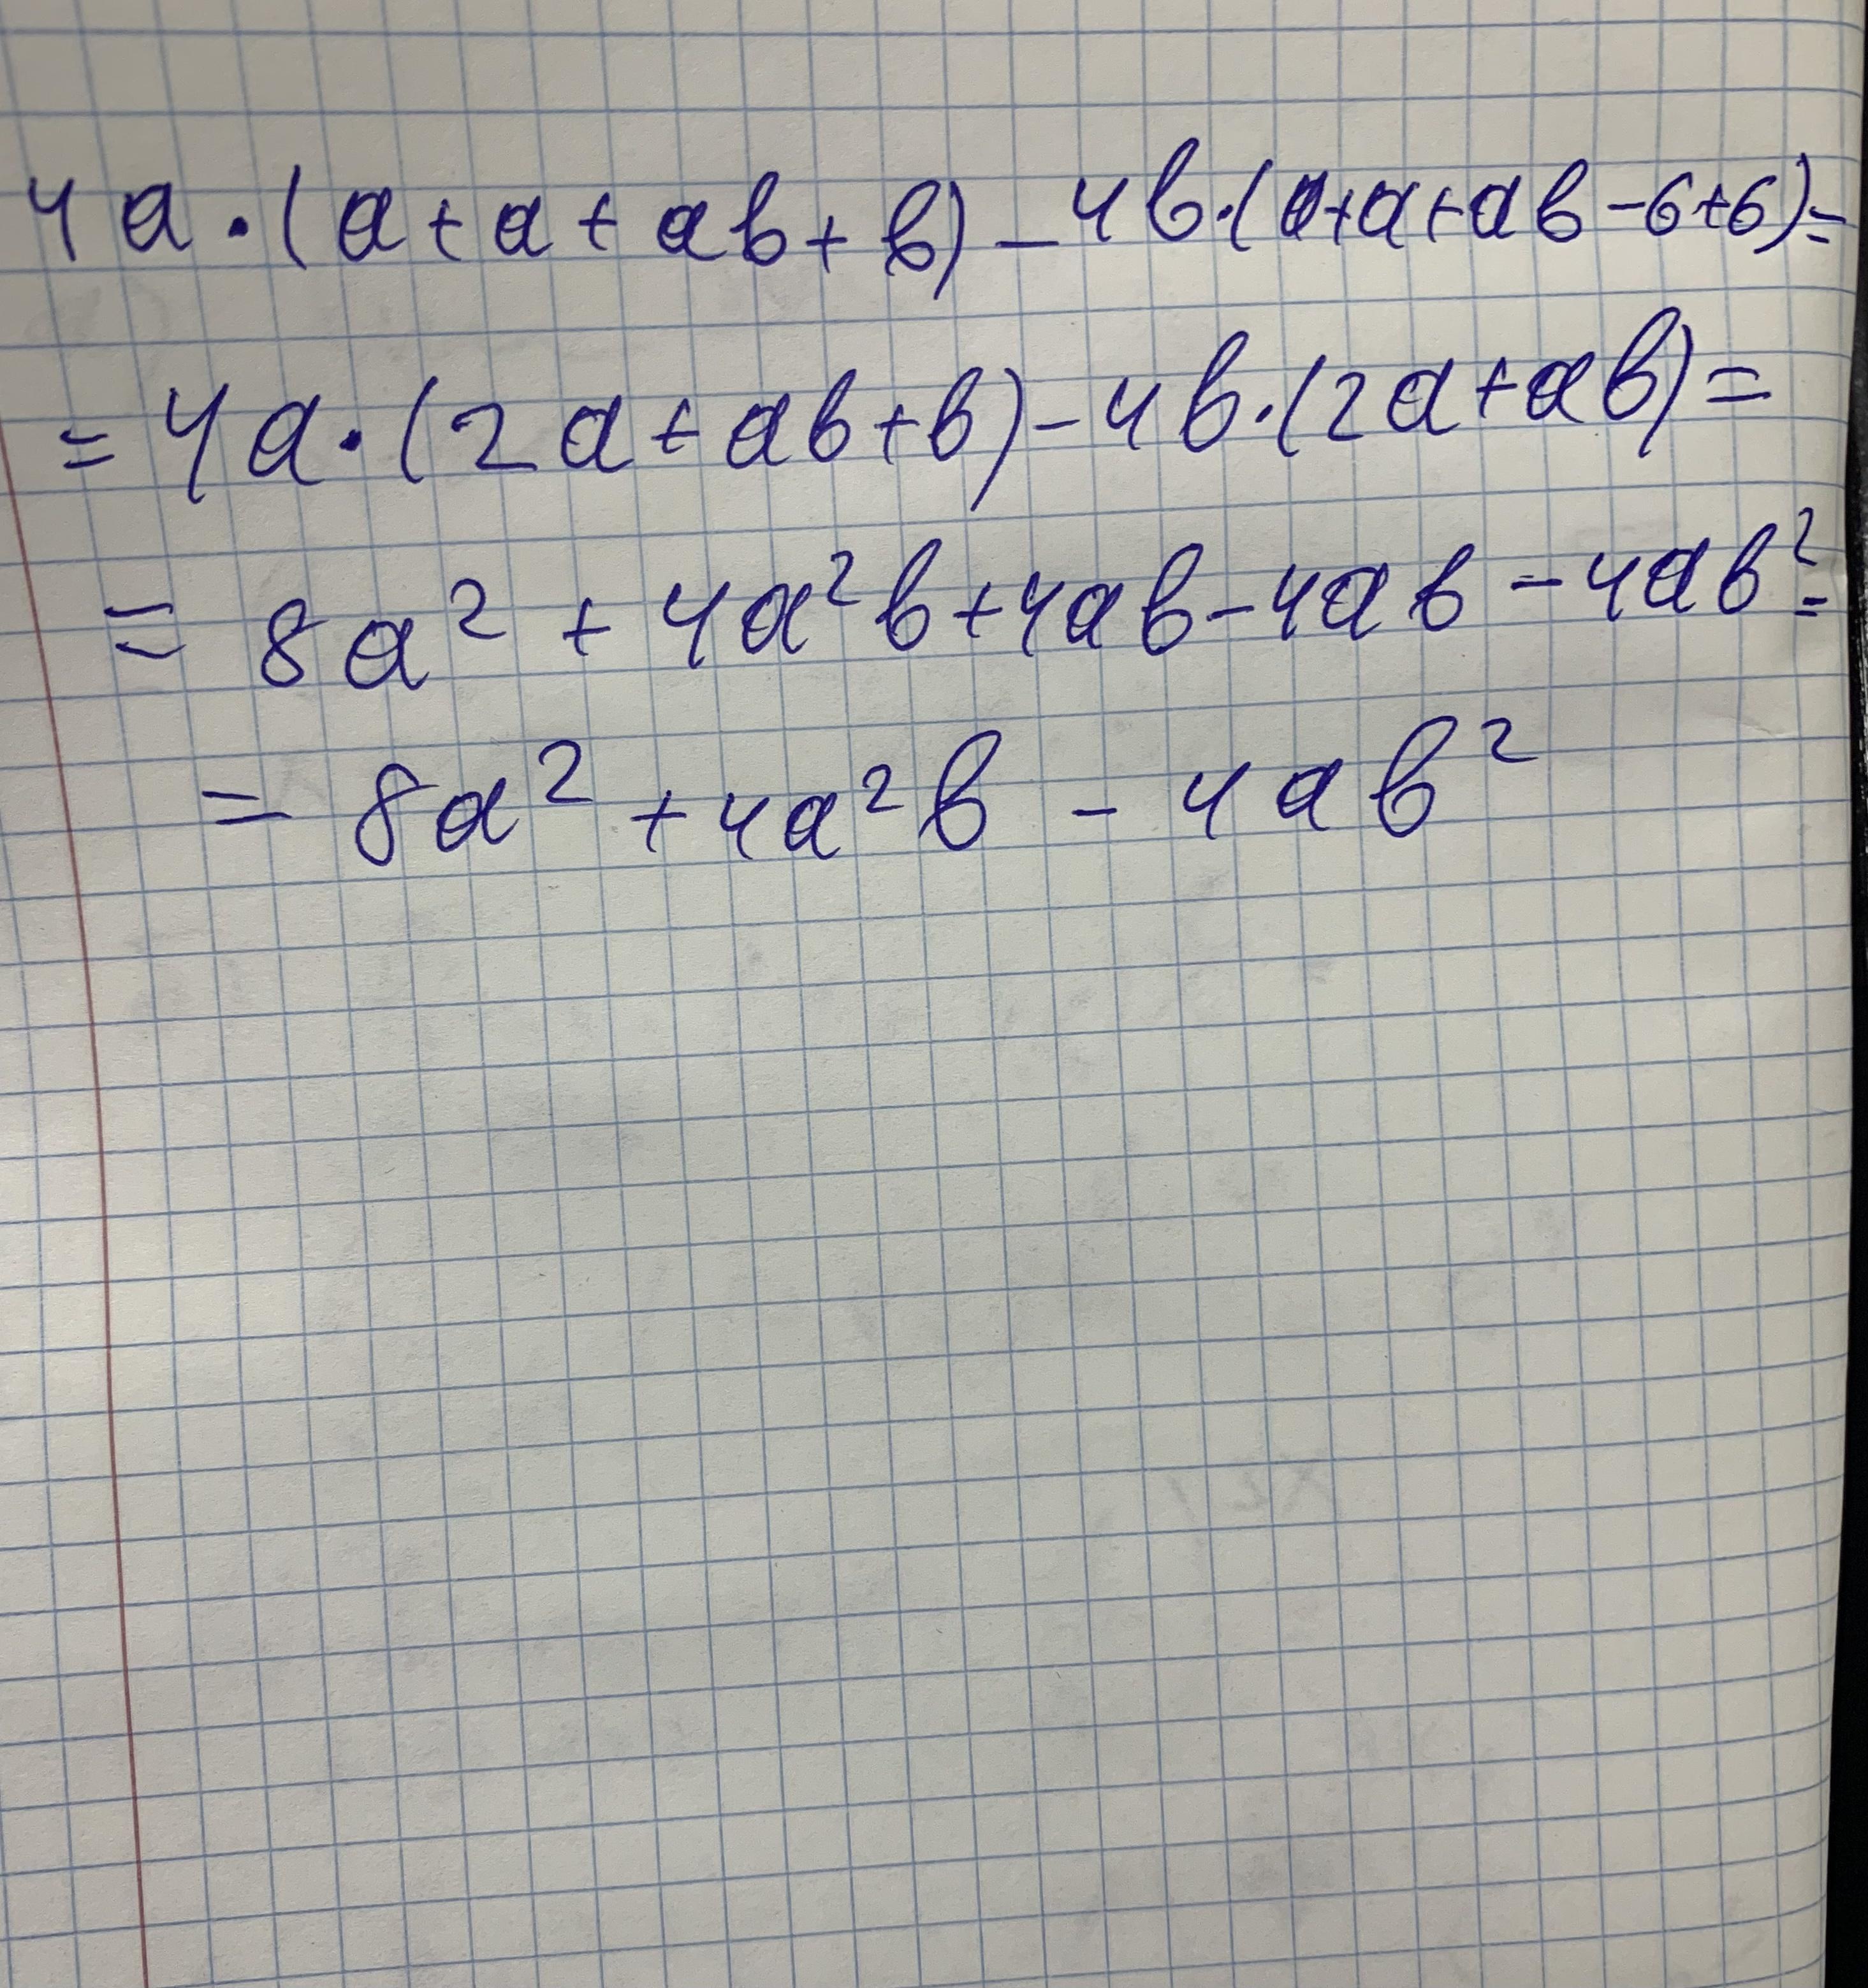 4a·(a+a+ab+b)-4b·(a+a+ab-6+6)=
=4a·(2a+ab+b)-4b·(2a+ab)=
=8a²+4a²b+4ab-4ab-4ab²=
=8a²+4a²b-4ab²